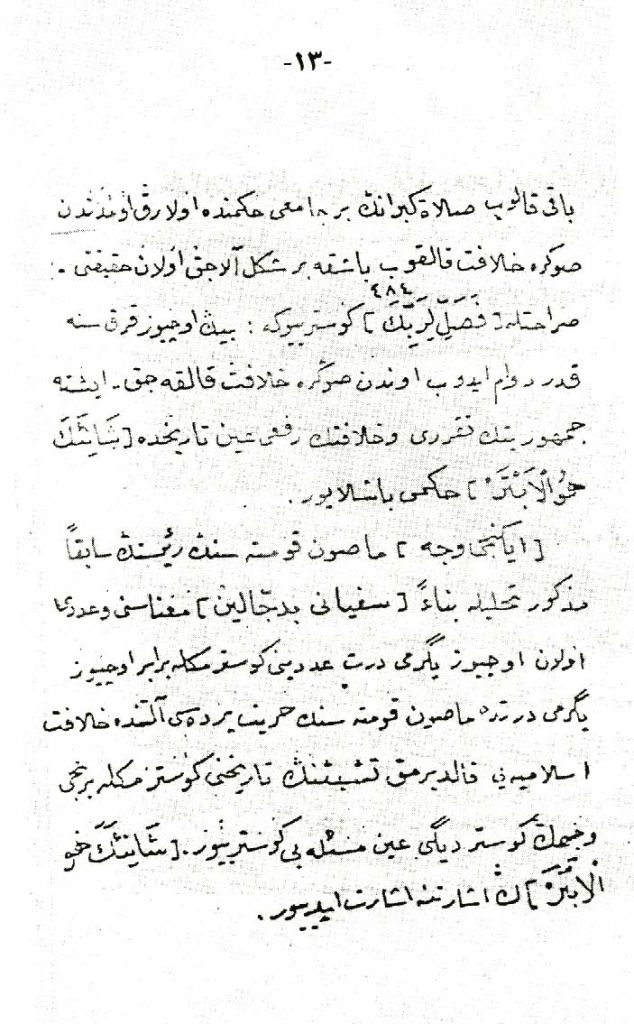 -١٣-
باقی قالوب صلاة كبرانك بر جامعی حكمنده اولارق اوندندن
صوكره خلافت قالقوب باشقه بر شكل آلاجق اولان حقيقتی -
٤٨٤
صراحتله [فَصَلِّ لِرَبِّكَ] كوسترييوركه : بيك اوچيوز قرق سنه
قدر دوام ايدوب اوندن صوكره خلافت قالقه جق - ايشته
جمهوريتك تقرری و خلافتك رفعی عين تاريخده [شَانِئَكَ
هُوَ الْاَبْتَرُ] حكمی باشلايور .
[ايكنجی وجه] ماصون قومته سنك رئيسنك سابقاً
مذكور تحليله بناءً [سفيانی بدجّالين] معناسنی و عددی
اولان اوچيوز يگرمی درت عددينی كوسترمكله برابر اوچيوز
يگرمی درتده ماصون قومته سنك حريت پرده سی آلتنده خلافت
اسلاميه یی قالديرمق تشبثنك تاريخنی كوسترمكله برنجی
وجهك كوسترديگی عين مسئله یی كوسترييور . [شَانِئَكَ هُوَ
الْاَبْتَرُ] ك اشارتنه اشارت ايدييور .